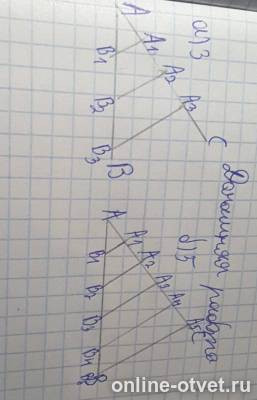 Домашняя работа
а) 3
A
A1
A2
A3
C
B1
B2
B3 B
б) 5
A
A1
A2
A3
A4
A5 C
B1
B2
B3
B4
online-otvet.ru